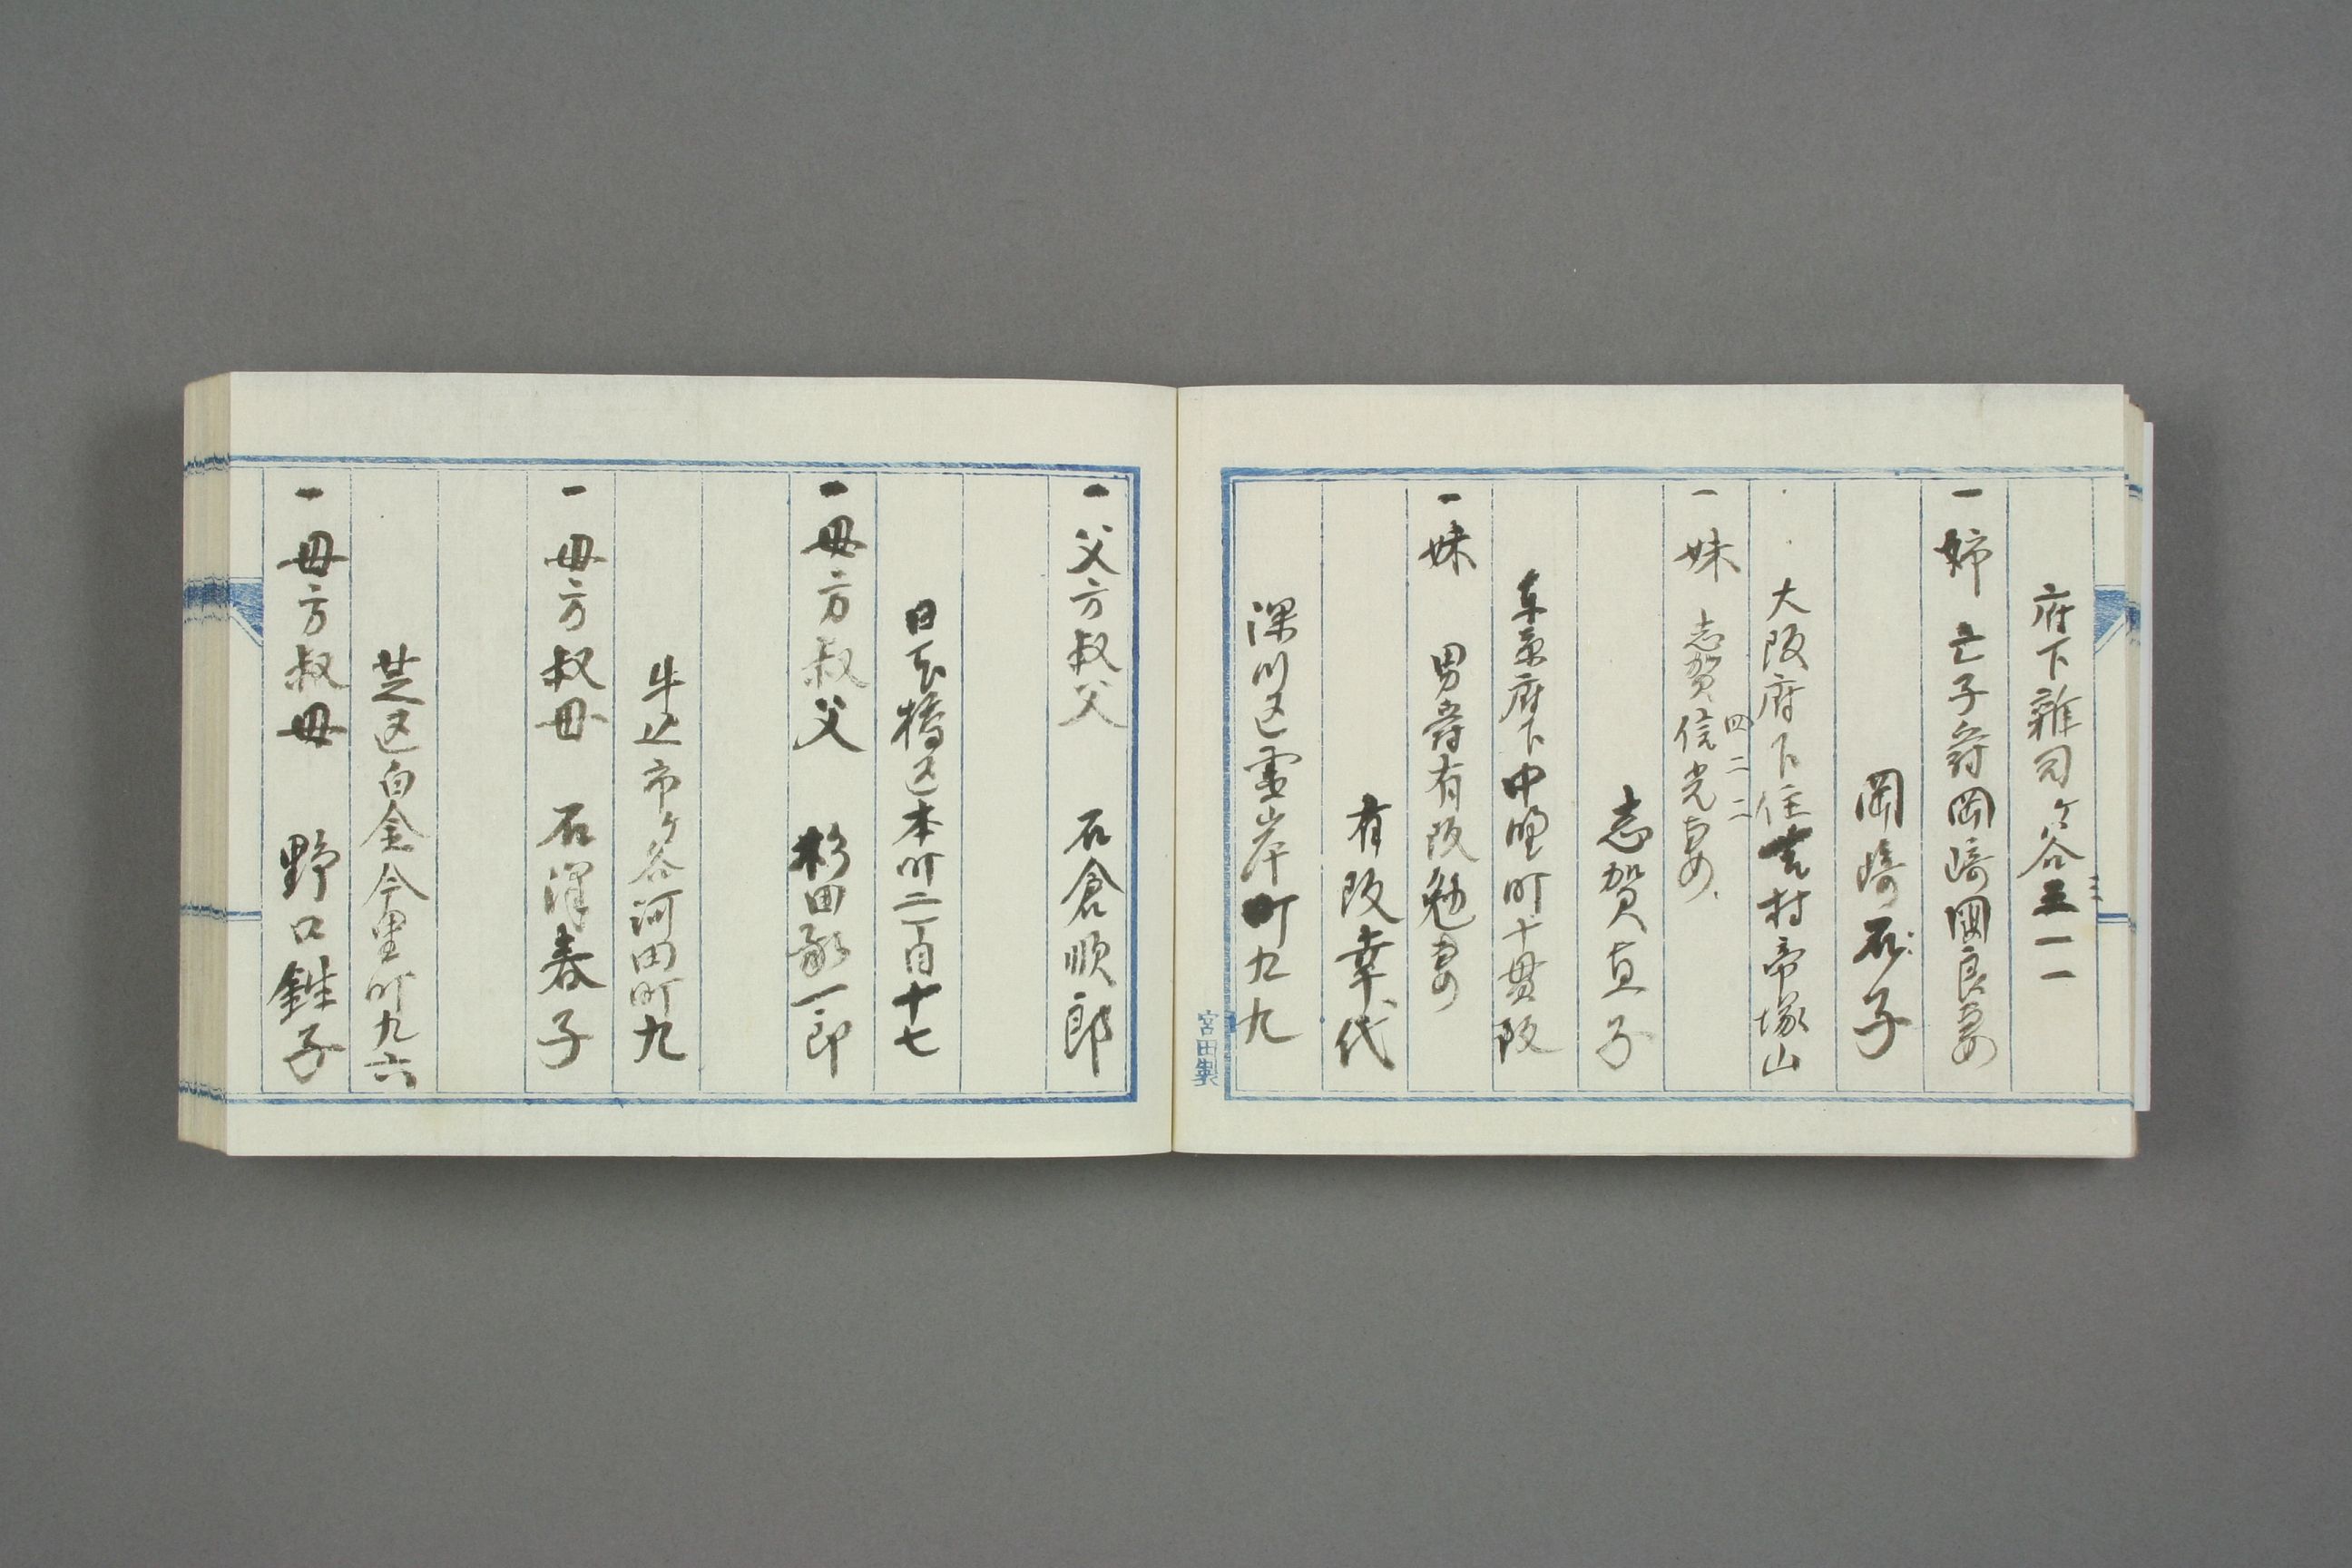 府下雜司ヶ谷三一一
一姉 亡子爵岡崎國良妻
岡崎砂子
大阪府下住吉村帝塚山
四二二
一妹 志賀信光妻
志賀直子
東京府下中野町十貫阪
一妹 男爵有阪勉妻
有阪幸代
深川区霊岸町九九
宮田製
一父方叔父 石倉順郎
日本橋区本町二丁目十七
一母方叔父 杉田 一郎
牛込市ヶ谷河田町九
一母方叔母 石澤春子
芝区白金今里町九六
一母方叔母 野口 子